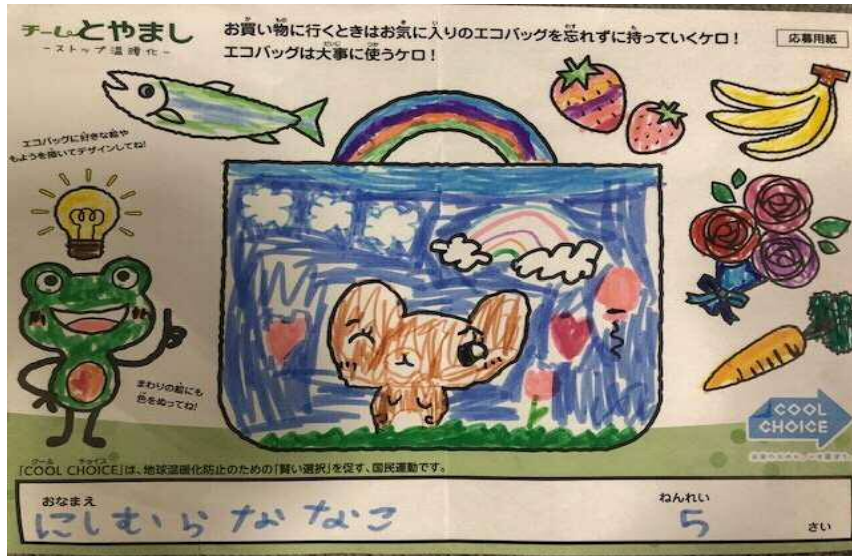 チームとやまし
－ストップ温暖化－
お買い物に行くときはお気に入りのエコバッグを忘れずに持っていくケロ！
エコバッグは大事に使うケロ！
応募用紙
エコバッグに好きな絵や
もようを描いてデザインしてね!
まわりの絵にも
色をぬってね!
COOL
CHOICE
「COOL CHOICE」は、地球温暖化防止のための「賢い選択」を促す、国民運動です。
おなまえ
にしむら ななこ
ねんれい
5
さい